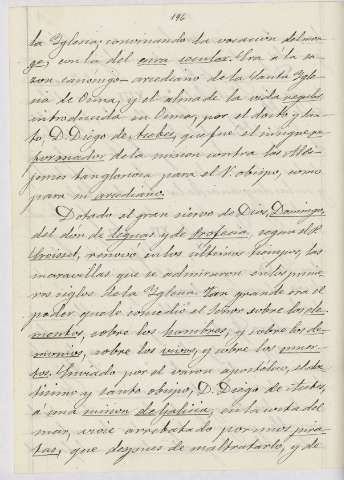 196
la Yglesia; convinando la vocación del mon-
ge, con la del cura secular. Era á la sa-
zon canonigo-arcediano de la Santa Ygle-
sia de Osma; y el alma de la vida regular
introducida en Osma, por el docto y San-
to, D. Diego de Acebes, que fué el insigne re-
formador de la mision contra los Albi-
jenses tan gloriosa para el V. obispo, como
para su arcediano.
Dotado el gran siervo de Dios, Domingo,
del dón de lenguas y de Profecia, segun el P.
Croisset, renovó en los ultimos tiempos, las
maravillas que se admiraron en los prime-
ros siglos de la Yglesia. Tan grande era el
poder que le concedió el Señor sobre los ele-
mentos, sobre los hombres, y sobre los de-
monios, sobre los vivos, y sobre los muer-
tos. Enviado por el varon apostolico, el doc-
tisimo y santo obispo, D. Diego de Acebes,
á una mision de Galicia, en la costa del
mar, vióse arrebatado por unos pira-
tas, que despues de maltratarlo, y de